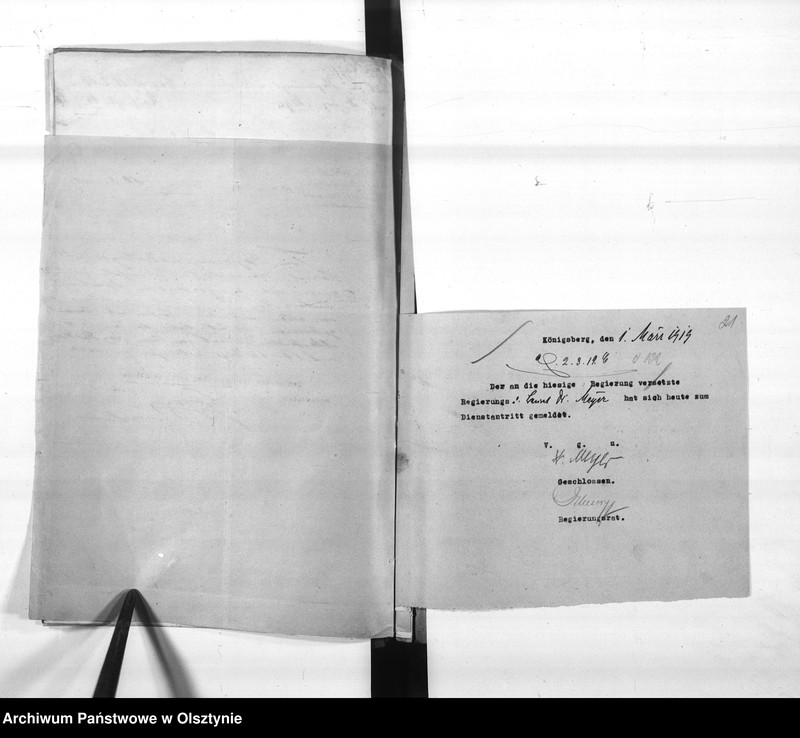 21
Königsberg, den 1. März 1919
2.3.19.
Der an die hiesige Regierung versetzte
Regierungs Dr. Meyer hat sich heute zum
Dienstantritt gemeldet.
v. g. u.
Dr. Meyer
Geschlossen.
Regierungsrat.
Archiwum Państwowe w Olsztynie